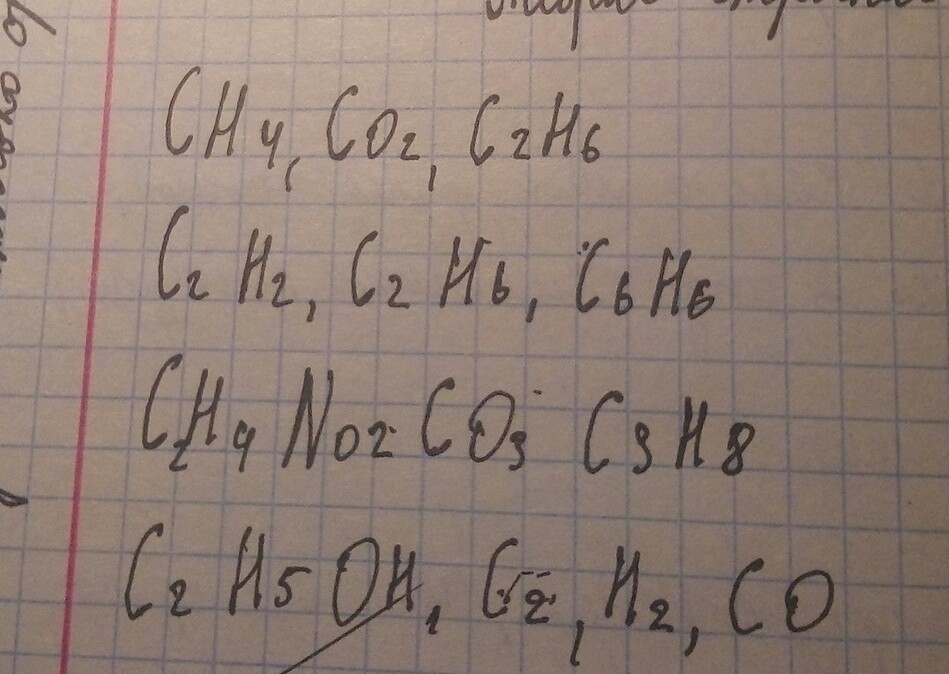 CH4, CO2, C2H6
C2 H2, C2 H6, C6H6
C2H4 NO2 CO3 C3H8
C2 H5 OH, C2, H2, CO